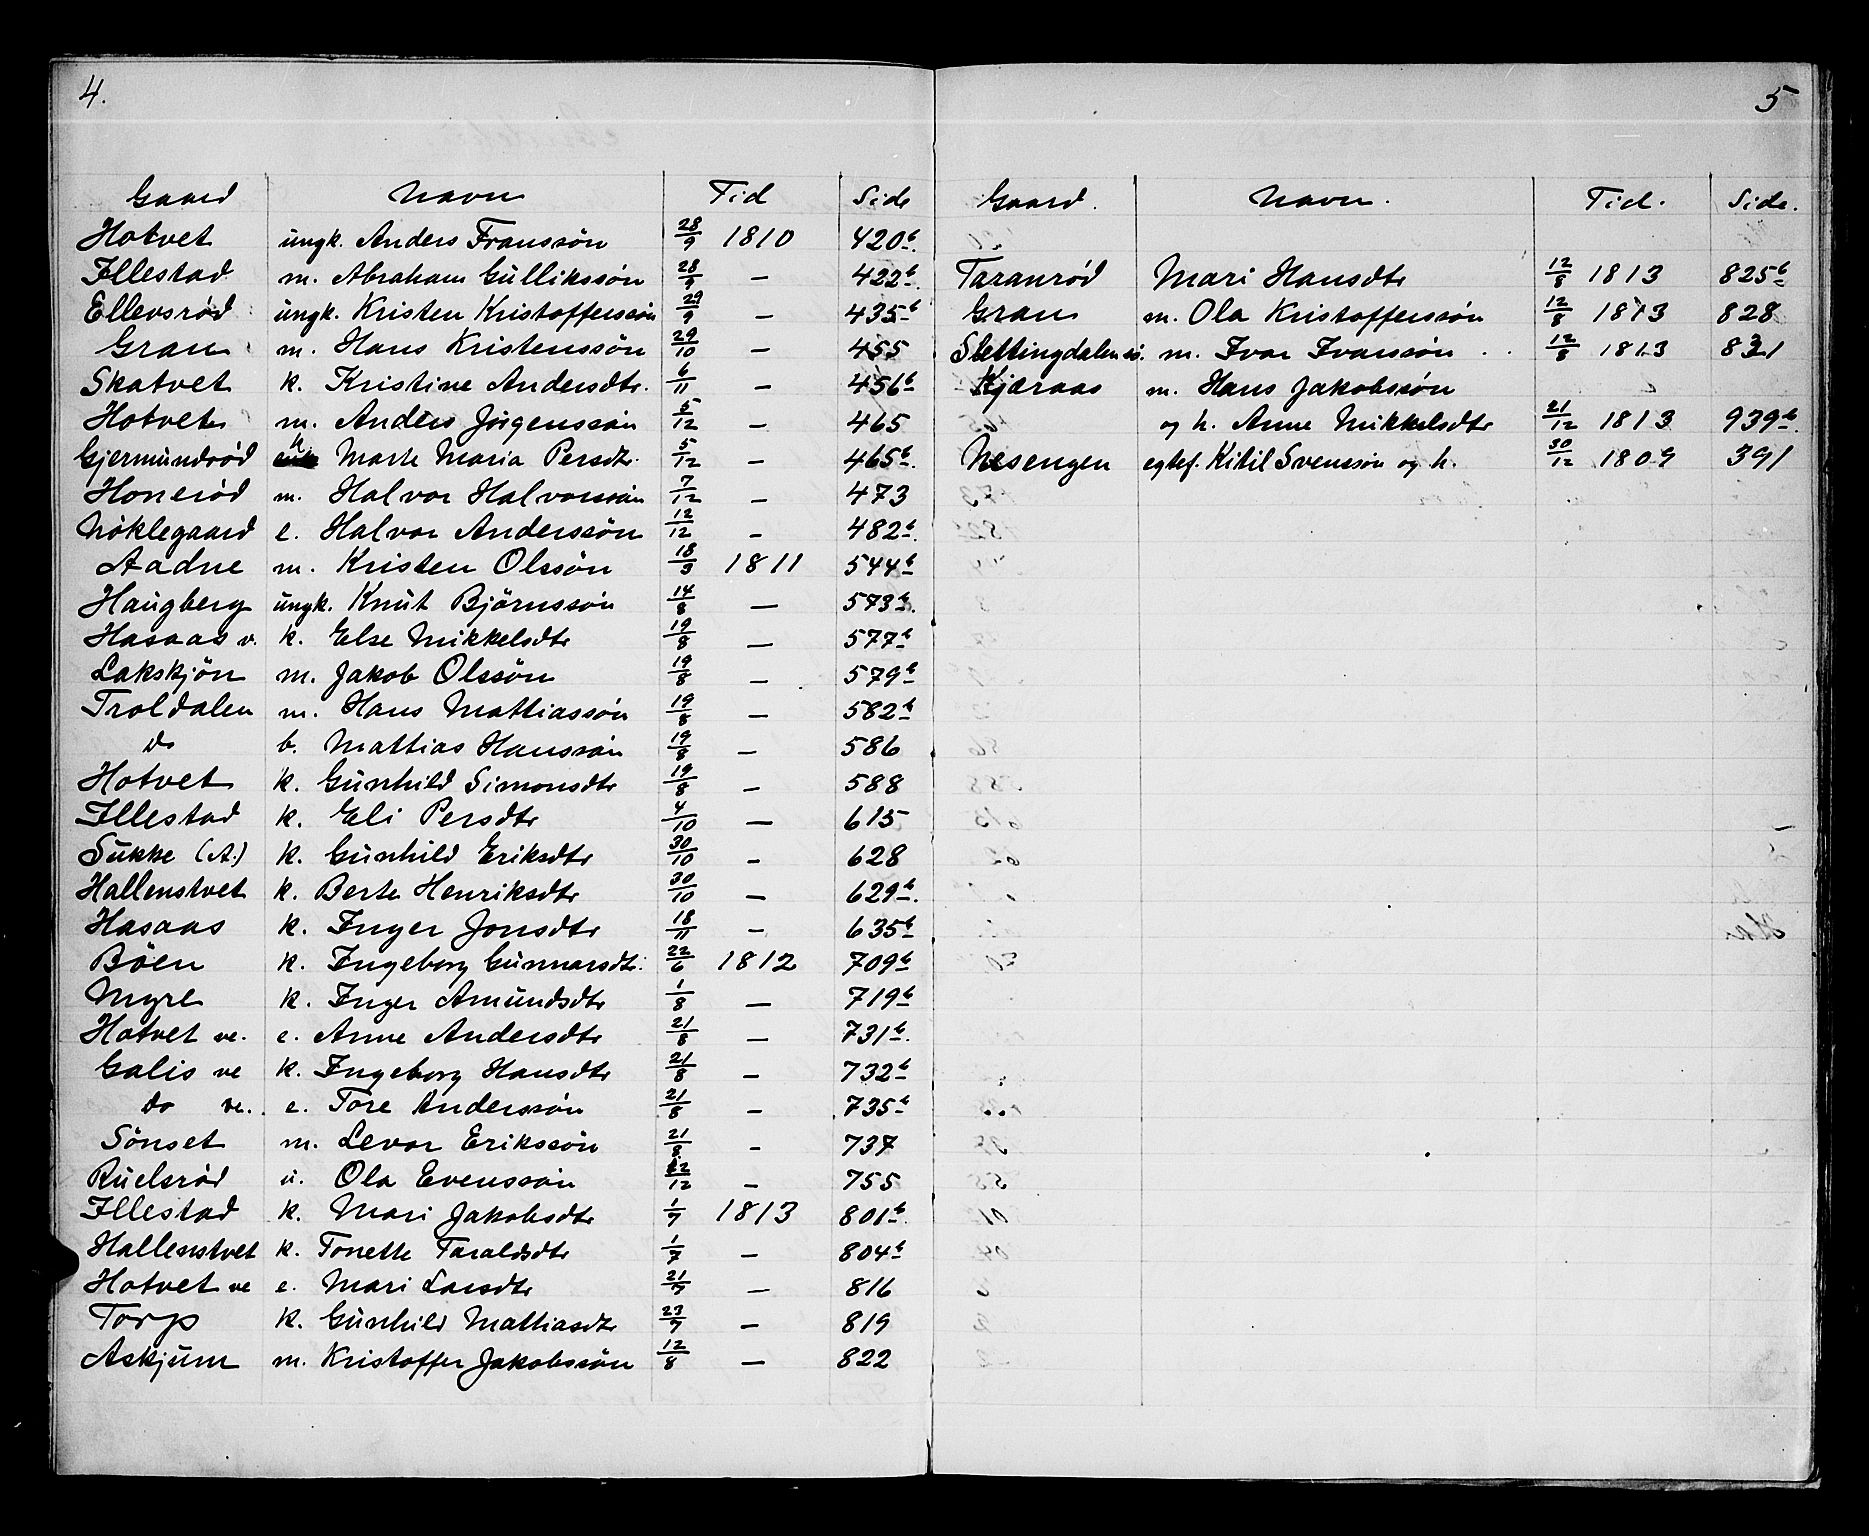 4.
Gaard Navn Tid Side
Hotvet ungk. Anders Franssøn 28/9 1810 420b.
Illestad m. Abraham Gullikssøn 28/9 — 422b.
Ellevsrød ungk. Kristen Kristofferssøn 29/9 — 435b
Gran m. Hans Kristenssøn 29/10 — 455
Skatvet k. Kristine Andersdtr. 6/11 — 456b
Hotvet m. Anders Jørgenssøn 5/12 — 465
Gjermundrød h Marte Maria Persdtr. 5/12 — 465b.
Honerød m. Halvor Halvorssøn 7/12 — 473
Nøklegaard e. Halvor Anderssøn 12/12 — 482b.
Aadne m. Kristen Olssøn 18/3 1811 544b
Haugberg ungk. Knut Bjørnssøn 14/8 — 573b.
Hasaas v. k. Else Mikkelsdtr 19/8 — 577b
Lakskjøn m. Jakob Olssøn 19/8 — 579b
Troldalen m. Hans Mattiassøn 19/8 — 582b
do b. Mattias Hanssøn 19/8 — 586
Hotvet k. Gunhild Simonsdtr 19/8 — 588
Illestad k. Eli Persdtr 4/10 — 615
Sukke (A.) k. Gunhild Eriksdtr 30/10 — 628
Hallenstvet k. Berte Henriksdtr 30/10 — 629b.
Hasaas k. Inger Jonsdtr 18/11 — 635b
Bøen k. Ingeborg Gunnarsdtr. 22/6 1812 709b
Myre k. Inger Amundsdtr 1/8 — 719b
Hotvet ve. e. Anne Andersdtr 21/8 — 731b.
Galis ve k. Ingeborg Hansdtr 21/8 — 732b
do ve. e. Tore Anderssøn 21/8 — 735b
Sønset m. Levor Erikssøn 21/8 — 737
Ruelsrød u. Ola Evenssøn 22/12 — 755
Illestad k. Mari Jakobsdtr 1/7 1813 801b.
Hallenstvet k. Tonette Taraldsdtr 1/7 — 804b
Hotvet ve e. Mari Larsdtr 21/7 — 816
Torp k. Gunhild Mattiasdtr 23/7 — 819
Askjum m. Kristoffer Jakobssøn 12/8 — 822
5
Gaard. Navn. Tid. Side.
Taranrød Mari Hansdtr 12/8 1813 825b
Gran m. Ola Kristofferssøn 12/8 1813 828
Slettingdalen m. Ivar Ivarssøn 12/8 1813 831
Kjæraas m. Hans Jakobssøn
og h. Anne Mikkelsdtr 21/12 1813 939b.
Nesengen egtef. Kitil Svenssøn og h. 30/12 1809 391